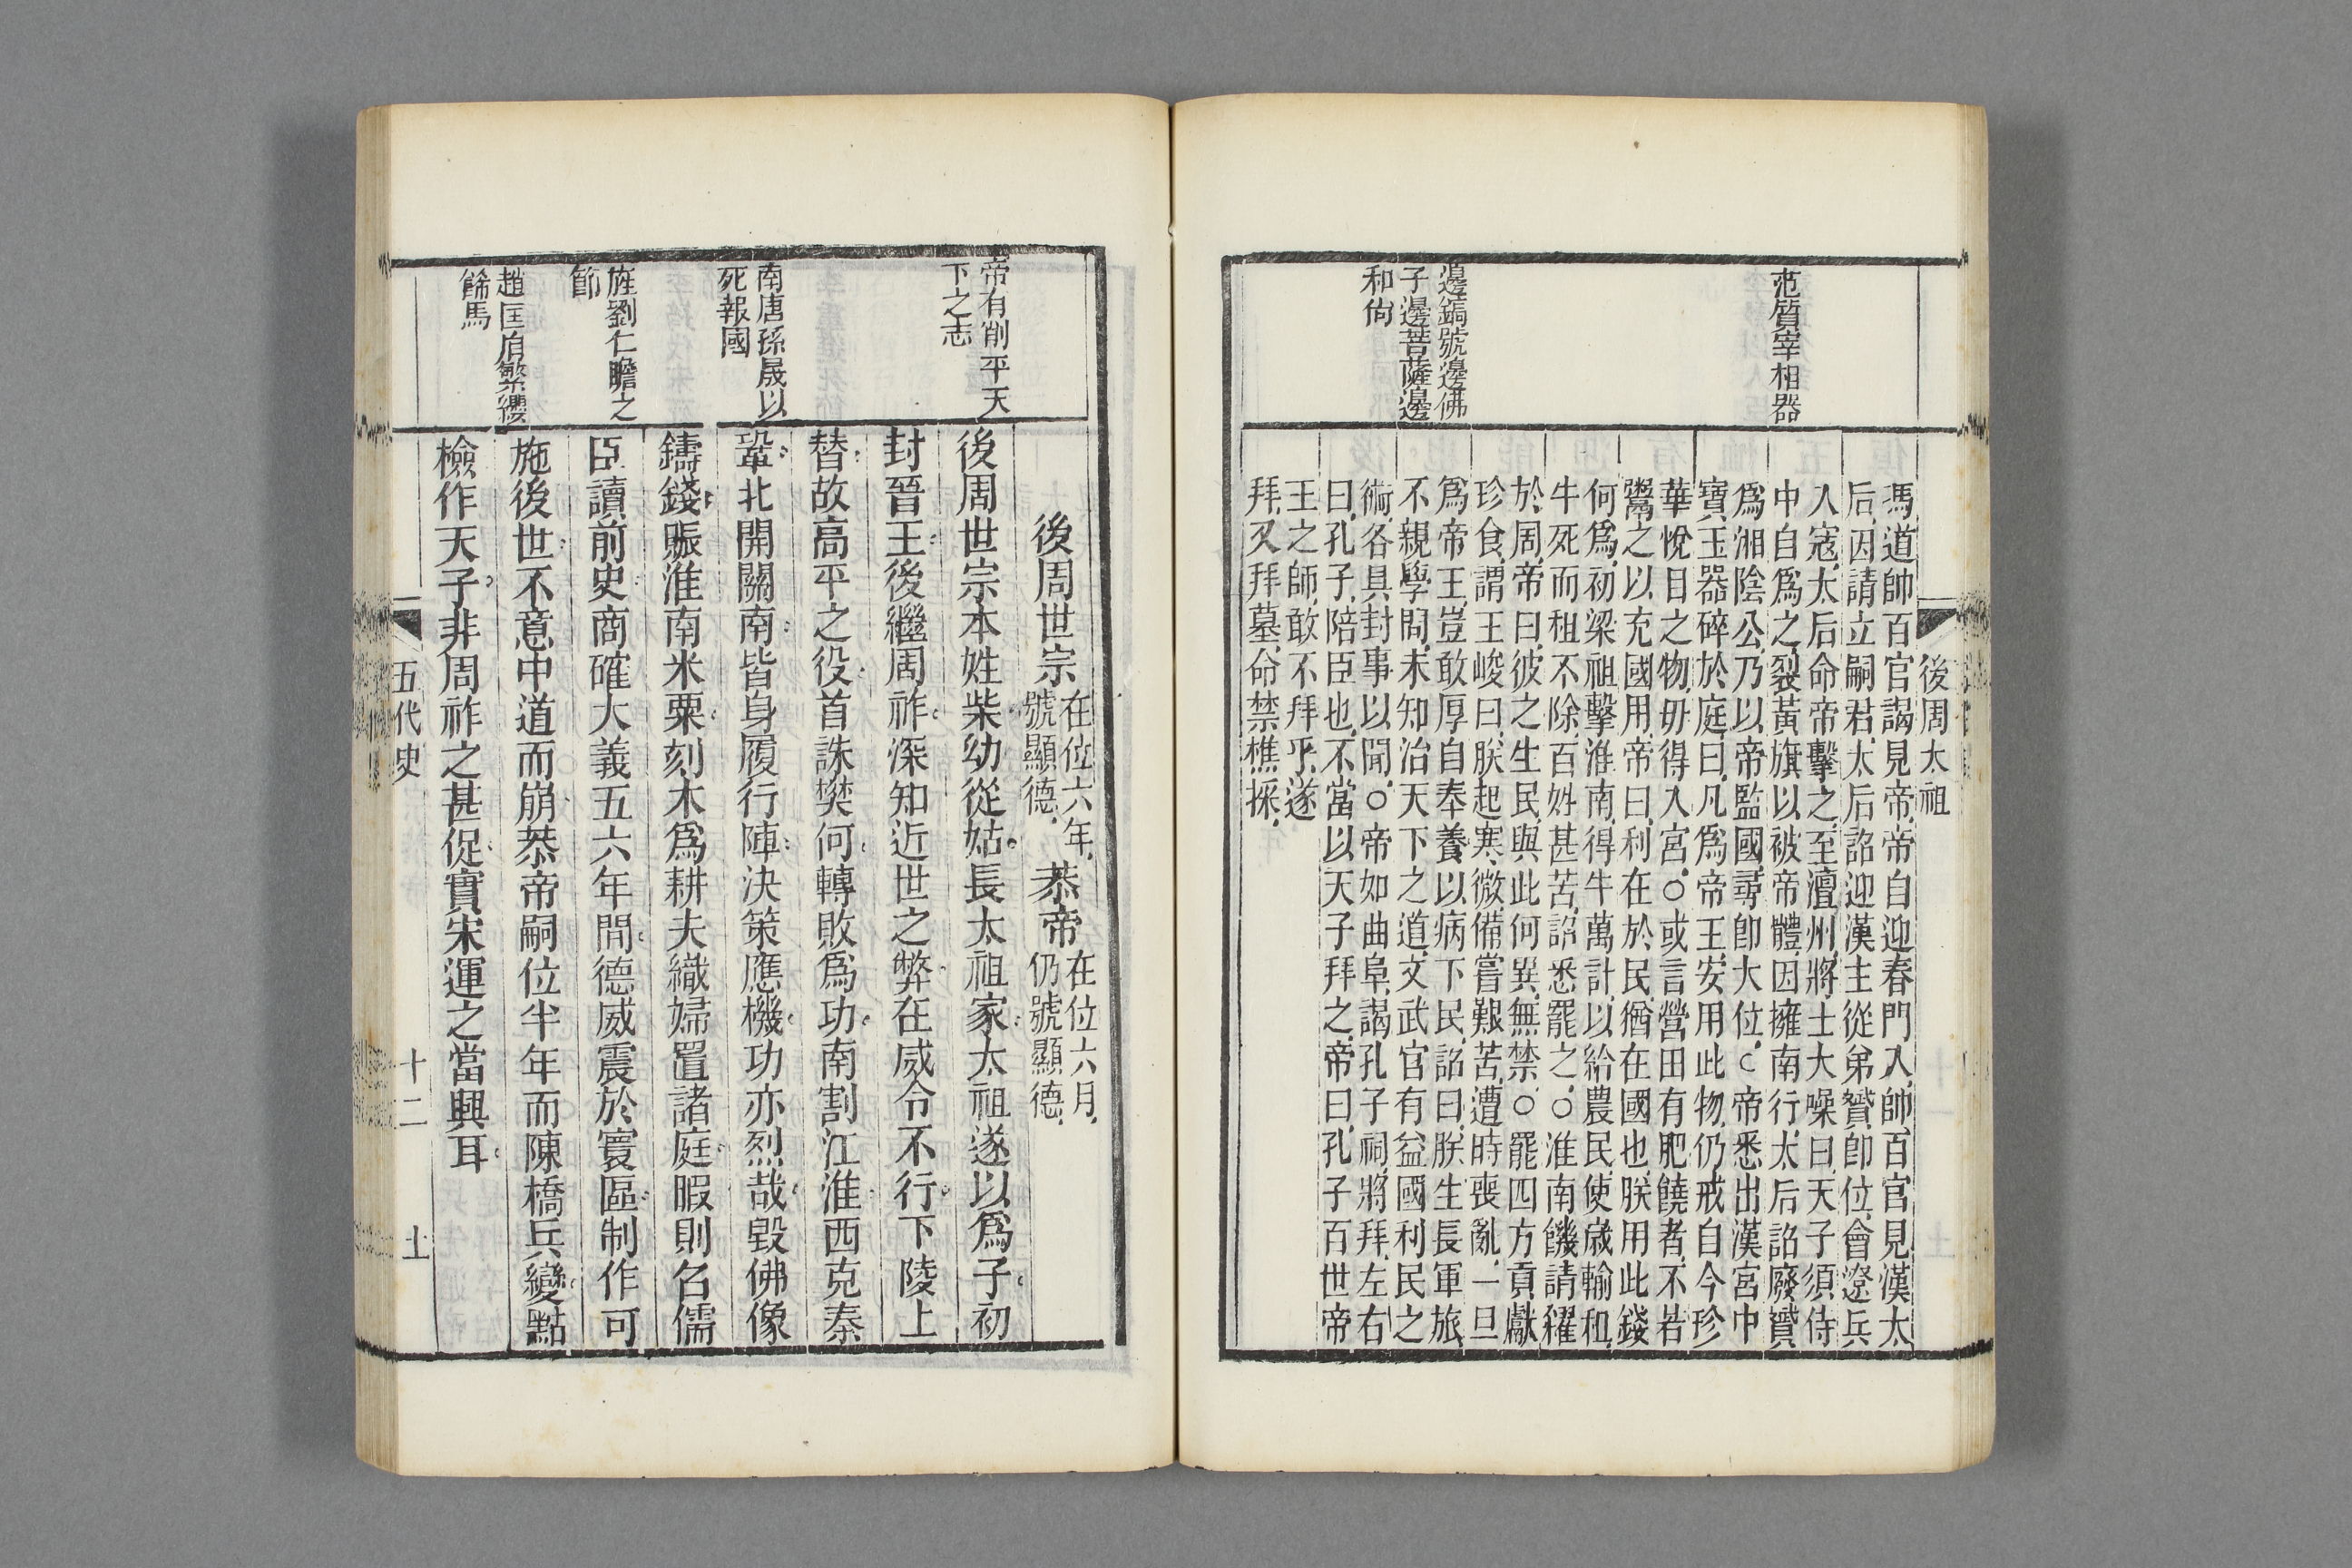 後周太祖
范質宰相器
邊鎬號邊佛
子邊菩薩邊
和尙
馮道帥百官謁見帝帝自迎春門入帥百官見漢太
后因請立嗣君太后詔迎漢主從弟贇卽位會遼兵
入寇太后命帝擊之至澶州將士大噪曰天子須侍
中自爲之裂黃旗以被帝體因擁南行太后詔廢贇
爲湘陰公乃以帝監國尋卽大位○帝悉出漢宮中
寶玉器碎於庭曰凡爲帝王安用此物仍戒自今珍
華悅目之物毋得入宮○或言營田有肥饒者不若
鬻之以充國用帝曰利在於民猶在國也朕用此錢
何爲初梁祖擊淮南得牛萬計以給農民使歲輸租
牛死而租不除百姓甚苦詔悉罷之○淮南饑請糴
於周帝曰彼之生民與此何異無禁○罷四方貢獻
珍食謂王峻曰朕起寒微備嘗艱苦遭時喪亂一旦
爲帝王豈敢厚自奉養以病下民詔曰朕生長軍旅
不親學問未知治天下之道文武官有益國利民之
術各具封事以聞○帝如曲阜謁孔子祠將拜左右
曰孔子陪臣也不當以天子拜之帝曰孔子百世帝
王之師敢不拜乎遂
拜又拜墓命禁樵採
帝有削平天
下之志
南唐孫晟以
死報國
旌劉仁瞻之
節
趙匡胤繁纓
飾馬
後周世宗在位六年號顯德恭帝在位六月仍號顯德
後周世宗本姓柴幼從姑長太祖家太祖遂以爲子初
封晉王後繼周祚深知近世之弊在威令不行下陵上
替故高平之役首誅樊何轉敗爲功南割江淮西克秦
鞏北開關南皆身履行陣決策應機功亦烈哉毀佛像
鑄錢賑淮南米粟刻木爲耕夫織婦置諸庭暇則名儒
臣讀前史商確大義五六年間德威震於寰區制作可
施後世不意中道而崩恭帝嗣位半年而陳橋兵變點
檢作天子非周祚之甚促實宋運之當興耳
五代史
十二